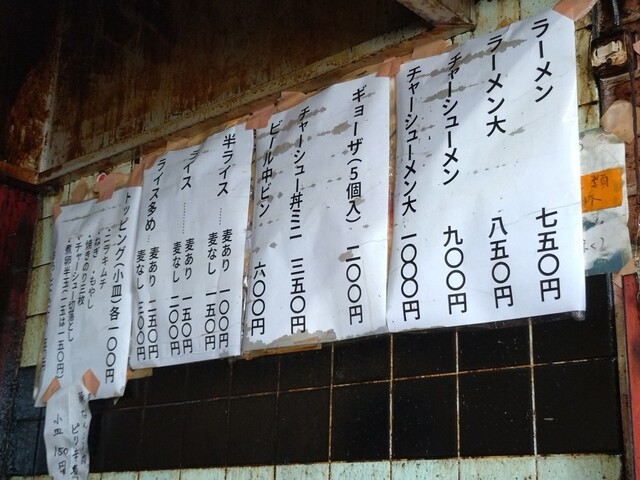 ラーメン 七五〇円
ラーメン大 八五〇円
チャーシューメン 九〇〇円
チャーシューメン大 一〇〇〇円
ギョーザ(5個入) 二〇〇円
チャーシュー丼ミニ 三五〇円
ビール中ビン 六〇〇円
半ライス …… 麦あり 一〇〇円
麦なし 一五〇円
ライス ……… 麦あり 一五〇円
麦なし 二〇〇円
ライス多め … 麦あり 二五〇円
麦なし 三〇〇円
トッピング(小皿)各一〇〇円
・ニラキムチ
・ねぎ ・もやし
・焼きのり三枚
・チャーシュー切落とし
・煮卵半玉(一玉は一五〇円)
ピリ辛
小皿 150円